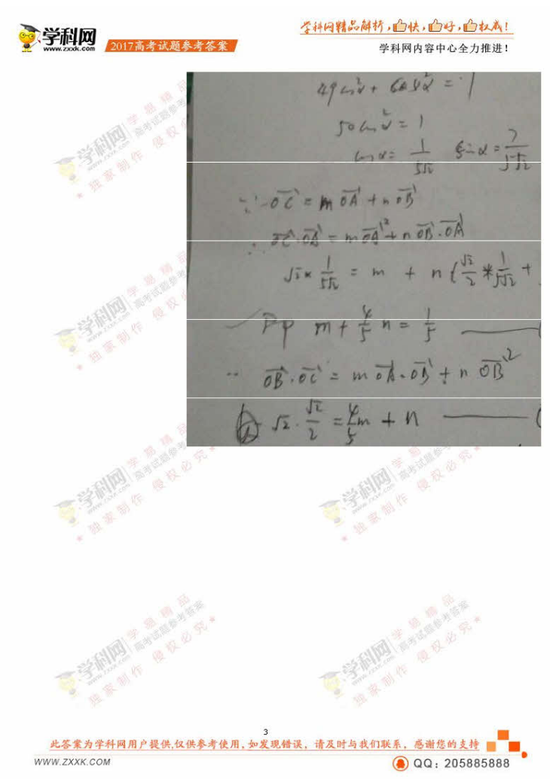 学科网
www.zxxk.com
2017高考试题参考答案
学科网精品解析,快,好,权威!
学科网内容中心全力推进!
50cos²α=1
cosα=1/5√2 sinα=7/5√2
∵ OC=mOA+nOB
∴ OC·OA=mOA²+nOB·OA
√2*1/5√2=m+n(√2/2*1/5√2+
即 m+4/5n=1/5
OB·OC=mOA·OB+nOB²
√2·√2/2=4/5m+n
学科网
学易精品
高考试题参考答案
独家制作 侵权必究
3
此答案为学科网用户提供,仅供参考使用,如发现错误,请及时与我们联系,感谢您的支持
WWW.ZXXK.COM
QQ:205885888